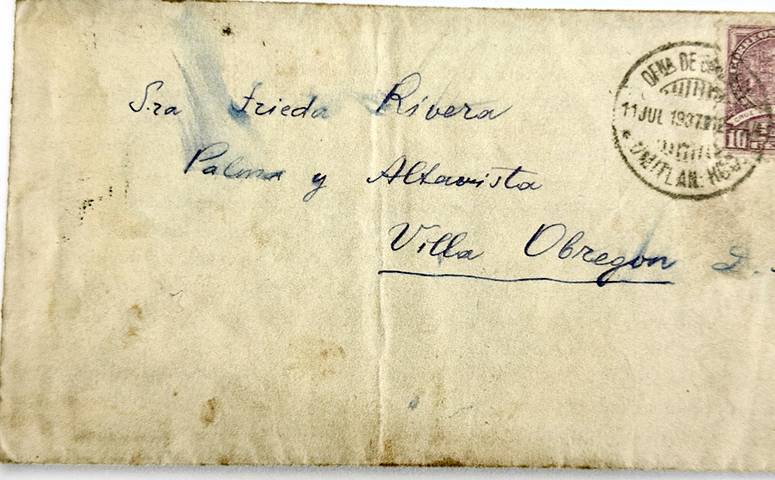 Sra Frieda Rivera
Palma y Altavista
Villa Obregon D.
OFNA DE
11 JUL 1937
OMITLAN. HGO.
10